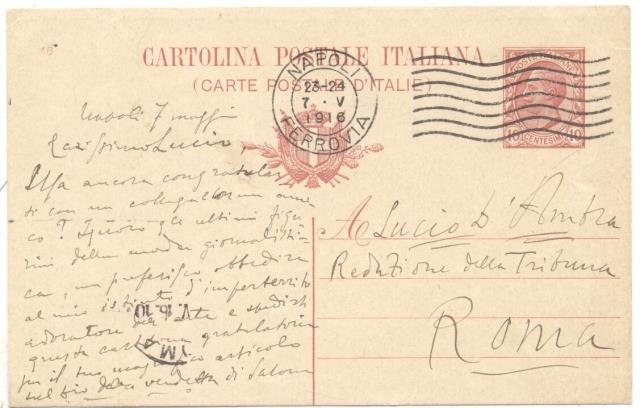 16
CARTOLINA POSTALE ITALIANA
(CARTE POSTALE D'ITALIE)
NAPOLI
23-24
7 · V
1916
FERROVIA
POSTE ITALIANE
10 CENTESIMI 10
Napoli 7 maggio
Carissimo Lucio,
Usa ancora congratular
ti con un collega con un ami
co? Ignoro gli ultimi figu
rini della moda giornalisti-
ca, ma preferisco obbedire
al mio istinto d'imperterrito
adoratore dell'arte e spedirti
questa cartolina gratulatoria
pel tuo magnifico articolo
della vendetta di Salomè
A Lucio D'Ambra
Redazione della Tribuna
Roma